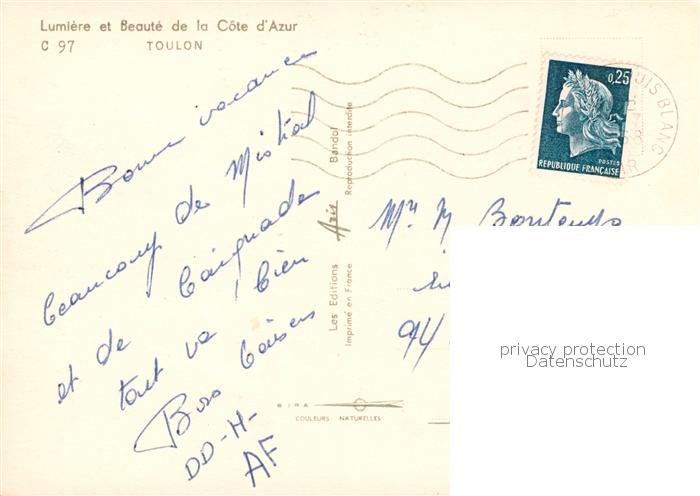 Lumière et Beauté de la Côte d'Azur
C 97 TOULON
Bonne vacances
beaucoup de Mistral
et de baignades
tout va bien
Bons baisers
DD-H-
AF
Les Editions Azis Bandol
Imprimé en France Reproduction interdite
BIRA
COULEURS NATURELLES
0,25
POSTES
REPUBLIQUE FRANÇAISE
UIS BLANC
Mr M Bontemps
94
privacy protection
Datenschutz